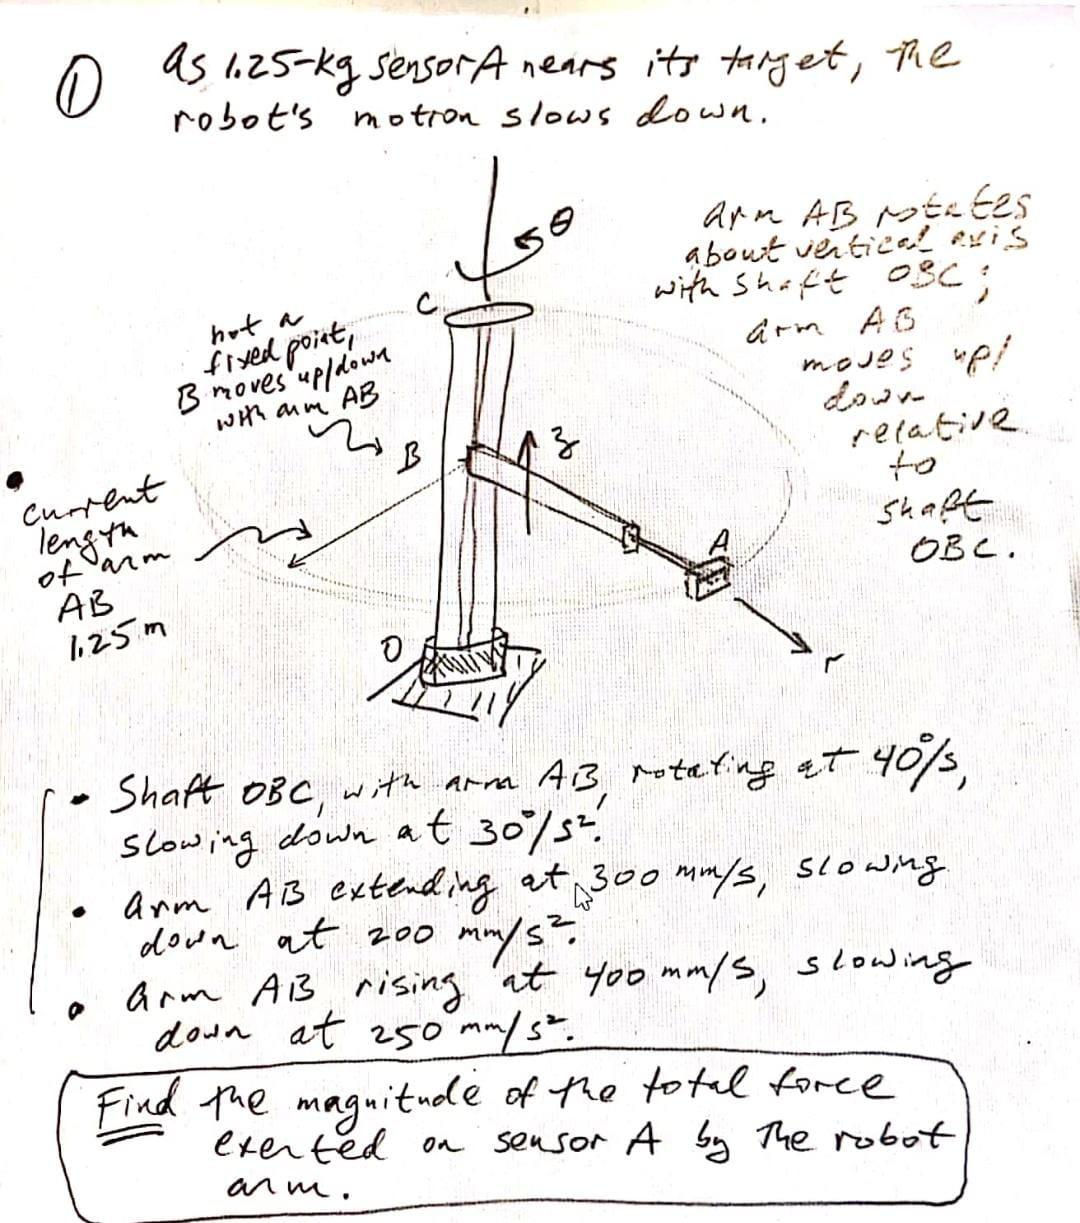 ① As 1.25-kg sensor A nears its target, the
robot's motion slows down.
θ
arm AB rotates
about vertical axis
with shaft OBC;
arm AB
moves up/
down
relative
to
shaft
OBC.
C
not a
fixed point,
B moves up/down
with arm AB
B
z
• current
length
of arm
AB
1.25 m
A
O
r
• Shaft OBC, with arm AB, rotating at 40°/s,
slowing down at 30°/s².
• arm AB extending at 300 mm/s, slowing
down at 200 mm/s².
• arm AB rising at 400 mm/s, slowing
down at 250 mm/s².
Find the magnitude of the total force
exerted on sensor A by the robot
arm.